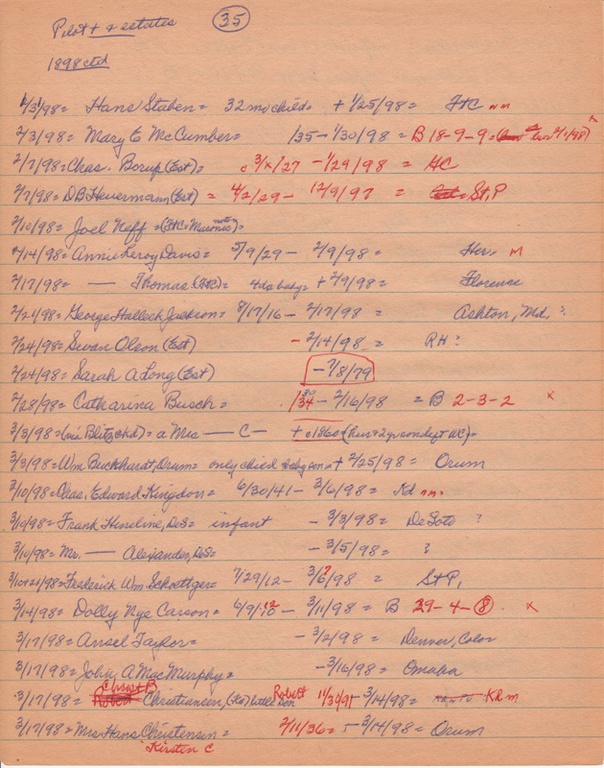 Pilot + & estates (35)
1898 ctd
1/31/98 = Hans Stuben = 32 mo child = + 1/25/98 = FtC nm
2/3/98 = Mary E McCumber = 1/35 - 1/30/98 = B 18-9-9 = x
2/7/98 = Chas. Borup (Est) = c 3/x/27 - 1/29/98 = HC
2/7/98 = DB Heuermann (Est) = 4/2/29 - 12/9/97 = St, P
2/10/98 = Joel Neff = (FtC = Masonic notice) =
2/14/98 = Annie Leroy Davis = 5/9/29 - 2/9/98 = Her. m
2/17/98 = — Thomas (FtC) = 4 da baby = + 2/9/98 = Florence
2/21/98 = George Halleck Jackson = 8/17/16 - 2/17/98 = Ashton, Md. ?
2/24/98 = Swan Olson (Est) - 2/14/98 = RH ?
2/24/98 = Sarah A Long (Est) - 7/8/79
2/28/98 = Catharina Busch = 1/34 30 - 2/16/98 = B 2-3-2 x
3/3/98 = (mie Blitz ctd) = a Mrs — C — + c 1860 =
3/3/98 = Wm Buckhardt, Orum = only child baby son = + 2/25/98 = Orum
3/10/98 = Chas. Edward Kingdon = 6/30/41 - 3/6/98 = Kd nm
3/10/98 = Frank Hineline, DeS = infant - 3/3/98 = DeSoto ?
3/10/98 = Mr. — Alexander, DeS = - 3/5/98 = ?
3/10+21/98 = Frederick Wm Schoettger = 7/29/12 - 3/6/98 ? = St P,
3/14/98 = Dolly Nye Carson = 6/9/10 12 - 3/11/98 = B 29-4-(8) . x
3/17/98 = Ansel Taylor = - 3/2/98 = Denver, Color
3/17/98 = John A MacMurphy = - 3/16/98 = Omaha
3/17/98 = Robert Chris B Christiansen, little son Robert 11/30/91 - 3/14/98 = KR m
3/17/98 = Mrs Hans Christensen = 2/11/36 = - 3/14/98 = Orum
Kirsten C